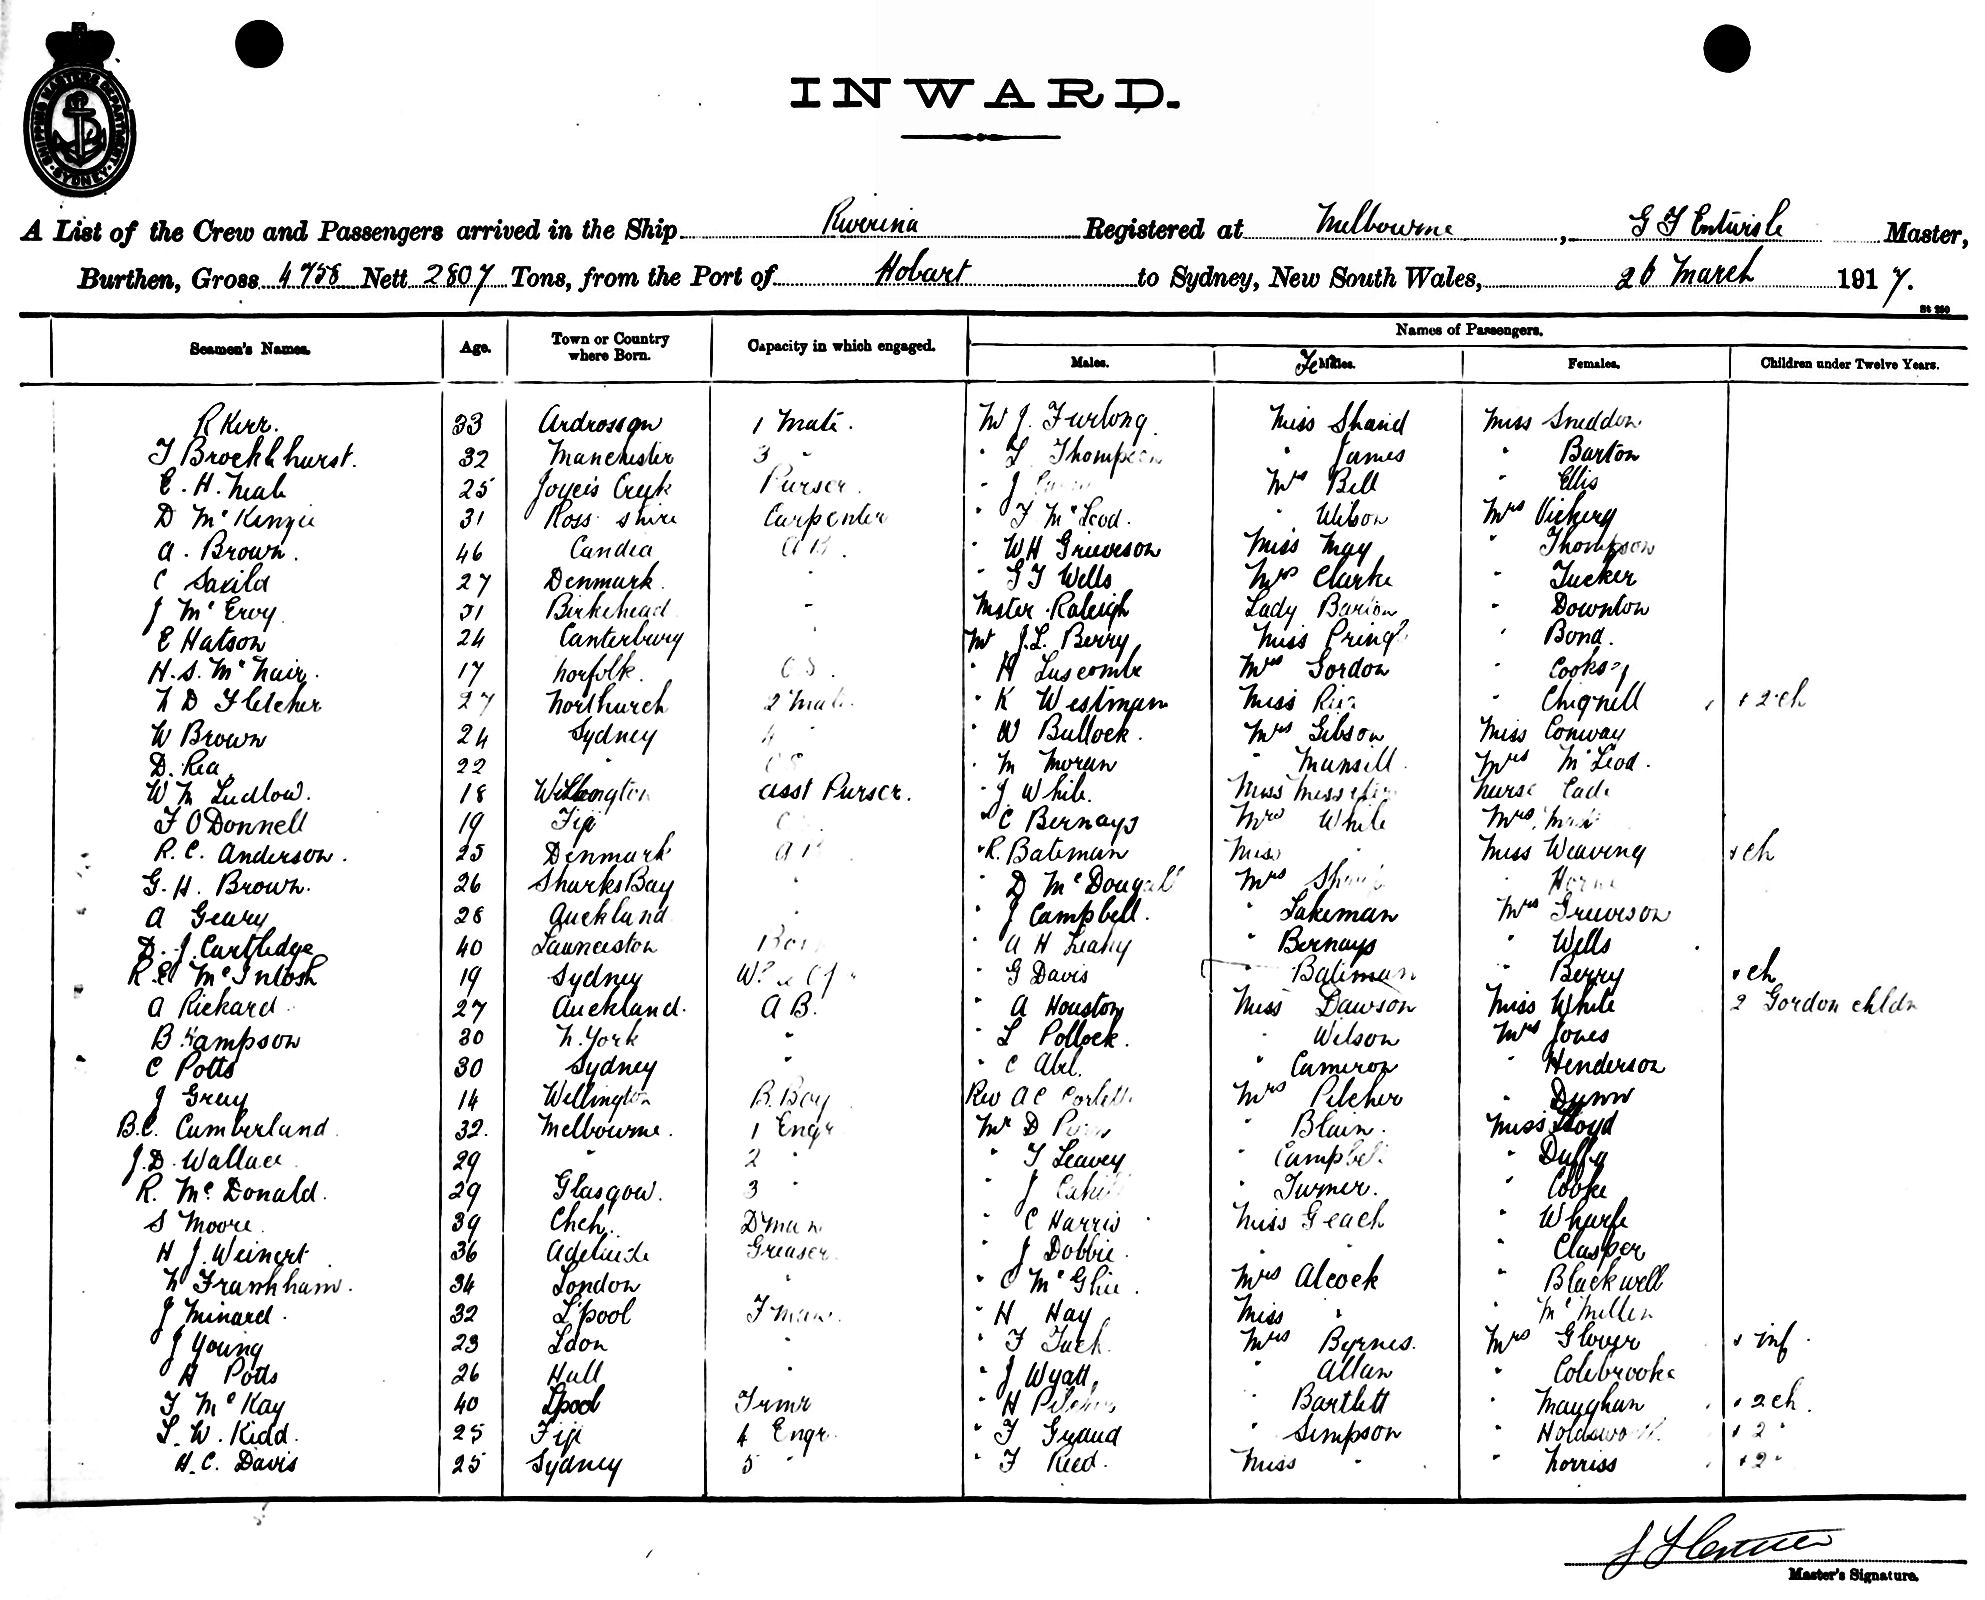 SHIPPING MASTERS DEPARTMENT SYDNEY
INWARD.
A List of the Crew and Passengers arrived in the Ship Riverina Registered at Melbourne, G F Entwisle Master,
Burthen, Gross 4758 Nett 2807 Tons, from the Port of Hobart to Sydney, New South Wales, 26 March 1917.
St 250
Names of Passengers.
Seamen's Names. Age. Town or Country where Born. Capacity in which engaged. Males. Fe Males. Females. Children under Twelve Years.
R Kerr. 33 Ardrossan 1 Mate. Mr J. Furlong. Miss Shand Miss Sneddon
T Brockhurst. 32 Manchester 3 " " L Thompson " James " Barton
E. H. Neale 25 Creek Purser. " J Mrs Bell " Ellis
D McKenzie 31 Ross shire Carpenter " F McLeod. " Wilson Mrs Vickery
A. Brown. 46 Candia A B. " W H Grieveson Miss May " Thompson
C 27 Denmark. " " G F Wells Mrs Clarke " Tucker
J McEvoy 31 Birkenhead " Master Raleigh Lady Barton " Downton
E Hatson 24 Canterbury " Mr J. L. Berry Miss Pringle " Bond.
H. S. McNair. 17 Norfolk. O S. " H Luscombe Mrs Gordon " Cooksey
N D Fletcher 27 Northurch 2 Mate. " K Westman Miss " Chignell + 2 ch
W Brown 24 Sydney 4 " " W Bullock. Mrs Gibson Miss Conway
D. Rea 22 " O S " M Moran " Munsill. Mrs McLeod.
W M Ludlow. 18 Wellington Asst Purser. " J. White. Miss Nurse
F O'Donnell 19 Fiji " C Bernays Mrs White Mrs
R. C. Anderson. 25 Denmark A B " R. Bateman Miss " Miss Weaving + ch
G. H. Brown. 26 Sharks Bay " " D McDougall Mrs " Horne
A Geary 28 Auckland " " J Campbell. " Lakeman Mrs Grieveson
D. J. Cartledge 40 Launceston " A H Leahy " Bernays " Wells
R. E. McIntosh 19 Sydney " G Davis " Bateman " Berry + ch
A Rickard 27 Auckland. A B. " A Houston Miss Dawson Miss White 2 Gordon chldn
B Sampson 30 N. York " " L Pollock. " Wilson Mrs Jones
C Potts 30 Sydney " " C Abel. " Cameron " Henderson
J Gray 14 Wellington B. Boy Rev A C Corlett Mrs Pilcher " Dunn
B. C. Cumberland 32. Melbourne. 1 Engr Mr D " Blain. Miss Lloyd
J. D. Wallace 29 " 2 " " T Leavey " Campbell " Duffy
R. McDonald. 29 Glasgow. 3 " " J Cahill " Turner. " Cooke
S Moore. 39 D'man " C Harris Miss Geach " Wharfe
H J. Weinert 36 Adelaide Greaser " J Dobbie. " " " Clasper
N Frankham. 34 London " " C McGhie. Mrs Alcock " Blackwell
J Minard. 32 L'pool F'man. " H Hay Miss " " McMillen
J Young 23 Ldon " " F Tuch. Mrs Byrnes. Mrs Glover + inf.
H Potts 26 Hull " " J Wyatt, " Allan " Colebrooke
T McKay 40 Lpool Trmr " H Pilcher " Bartlett " Maughan + 2 ch.
L. W. Kidd. 25 Fiji 4 Engr. " F Gyaud " Simpson " Holdsworth + 2 "
H. C. Davis 25 Sydney 5 " " F Reed. Miss " " Norriss + 2 "
Master's Signature.